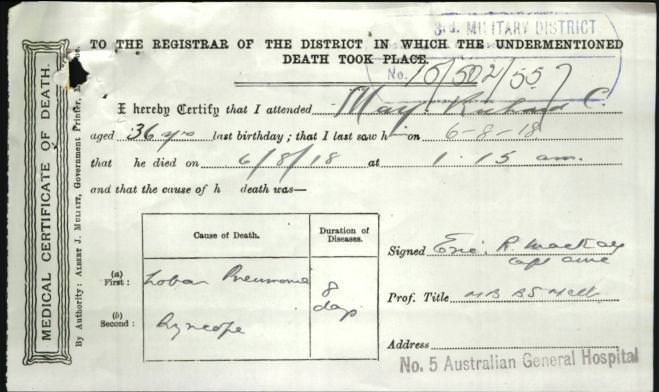 3rd. MILITARY DISTRICT
TO THE REGISTRAR OF THE DISTRICT IN WHICH THE UNDERMENTIONED
DEATH TOOK PLACE.
No. 15/502/557
I hereby Certify that I attended May. Richard C.
aged 36 yrs last birthday; that I last saw h on 6-8-18
that he died on 6/8/18 at 1.15 am.
and that the cause of h death was—
Cause of Death.
Duration of
Diseases.
(a)
First: Lobar Pneumonia 8
days
(b)
Second: Syncope
Signed Eric. R. Mackay
Capt
Prof. Title MB BS Melb
Address
No. 5 Australian General Hospital
MEDICAL CERTIFICATE OF DEATH.
By Authority: ALBERT J. MULLETT, Government Printer,